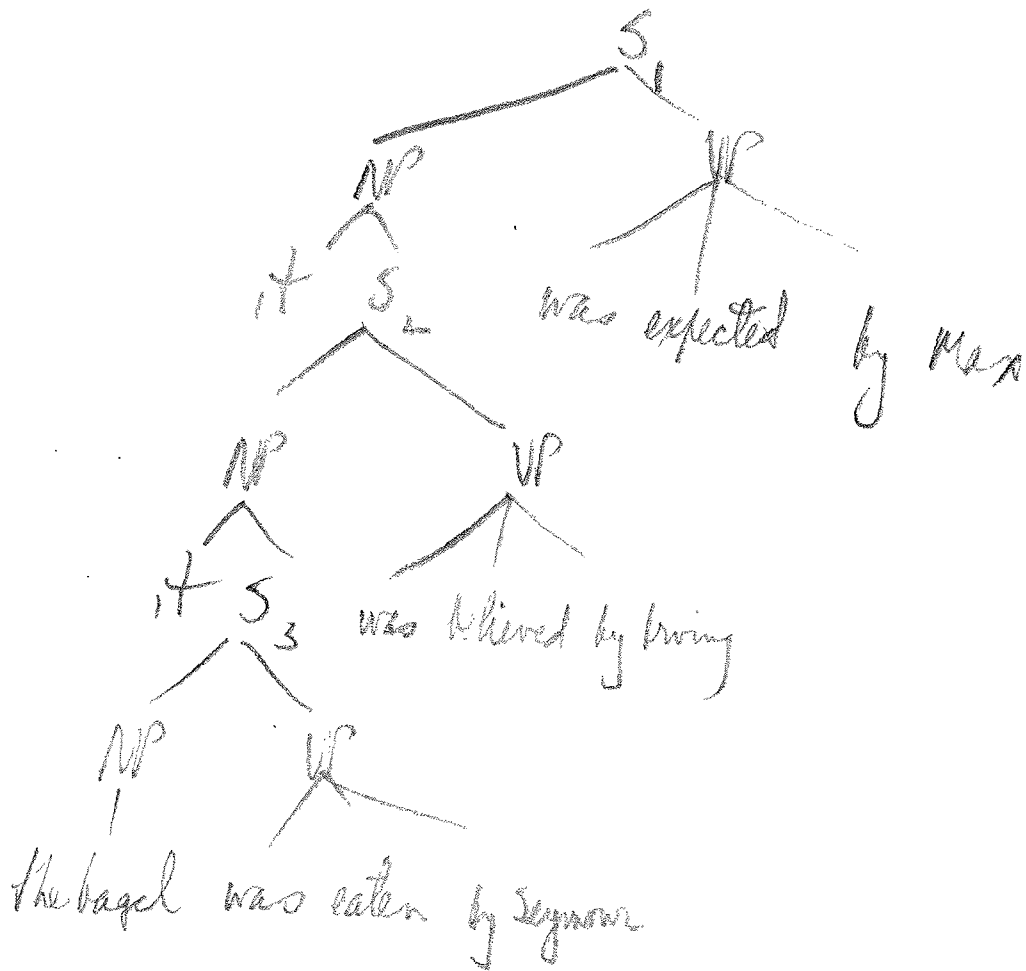 S1
NP VP
it S2 was expected by Max
NP VP
it S3 was believed by Irving
NP VP
the bagel was eaten by Seymour